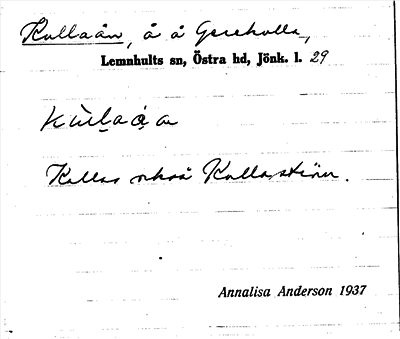 Kullaån, å å Gereholla,
Lemnhults sn, Östra hd, Jönk. l. 29
kùlaá̤ a
Kallas också Kullaström.
Annalisa Anderson 1937